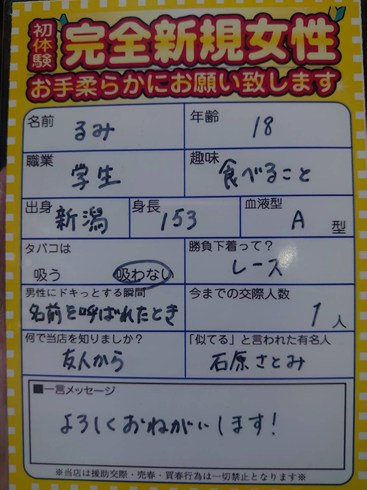 初体験 完全新規女性
お手柔らかにお願い致します
名前 るみ 年齢 18
職業 学生 趣味 食べること
出身 新潟 身長 153 血液型 A 型
タバコは 勝負下着って?
吸う 吸わない レース
男性にドキっとする瞬間 今までの交際人数
名前を呼ばれたとき 1 人
何で当店を知りましたか? 「似てる」と言われた有名人
友人から 石原さとみ
■一言メッセージ
よろしくおねがいします!
※当店は援助交際・売春・買春行為は一切禁止となります※